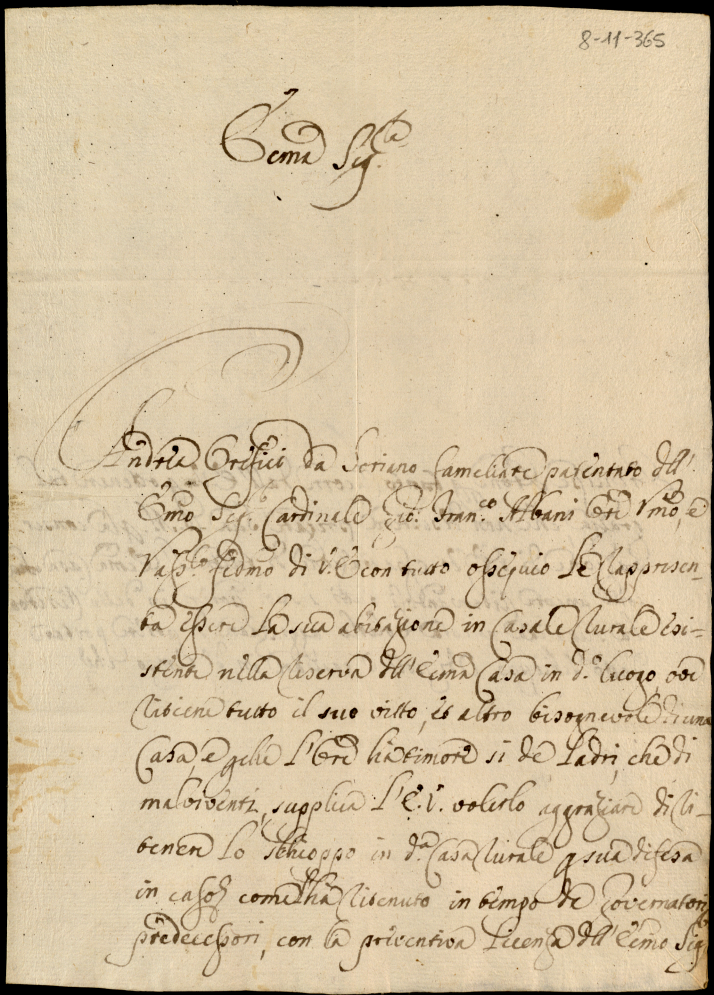 8-11-365
Eccma Sig.ria
Andrea Orefici da Soriano fameliare patentato dell'
Emo Sig. Cardinale Gio: Fran.co Albani Ore Vmo, e
Vass.o fedmo di V. E. con tutto ossequio Le rappresen-
ta essere la sua abitazione in Casale rurale esi-
stente nella riserva dell'Eccma Casa in d.o luogo ove
ritiene tutto il suo vitto, et altro bisognevole di una
Casa, e perche l'Ore ha timore si de Ladri, che di
malviventi, supplica l'E. V. volerlo aggraziare di ri-
tenere lo schioppo in d.a Casa rurale p sua difesa
in casa come l'ha ritenuto in tempo de Governatori
predecessori, con la preventiva licenza dell'Eccmo Sig